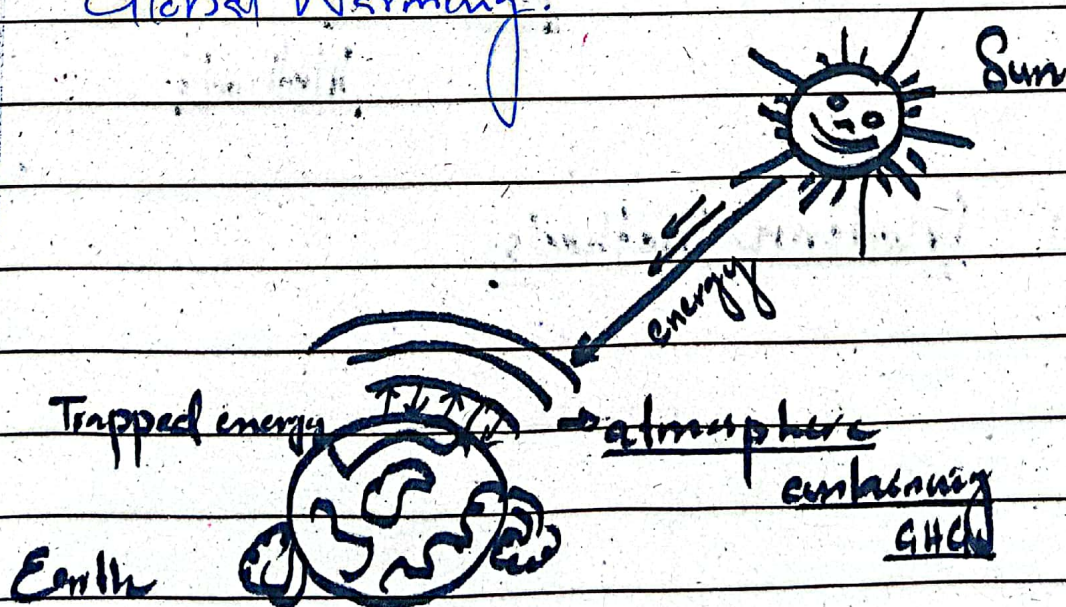 Global Warming.
Sun
energy
Trapped energy
→ atmosphere
containing
GHGs
Earth